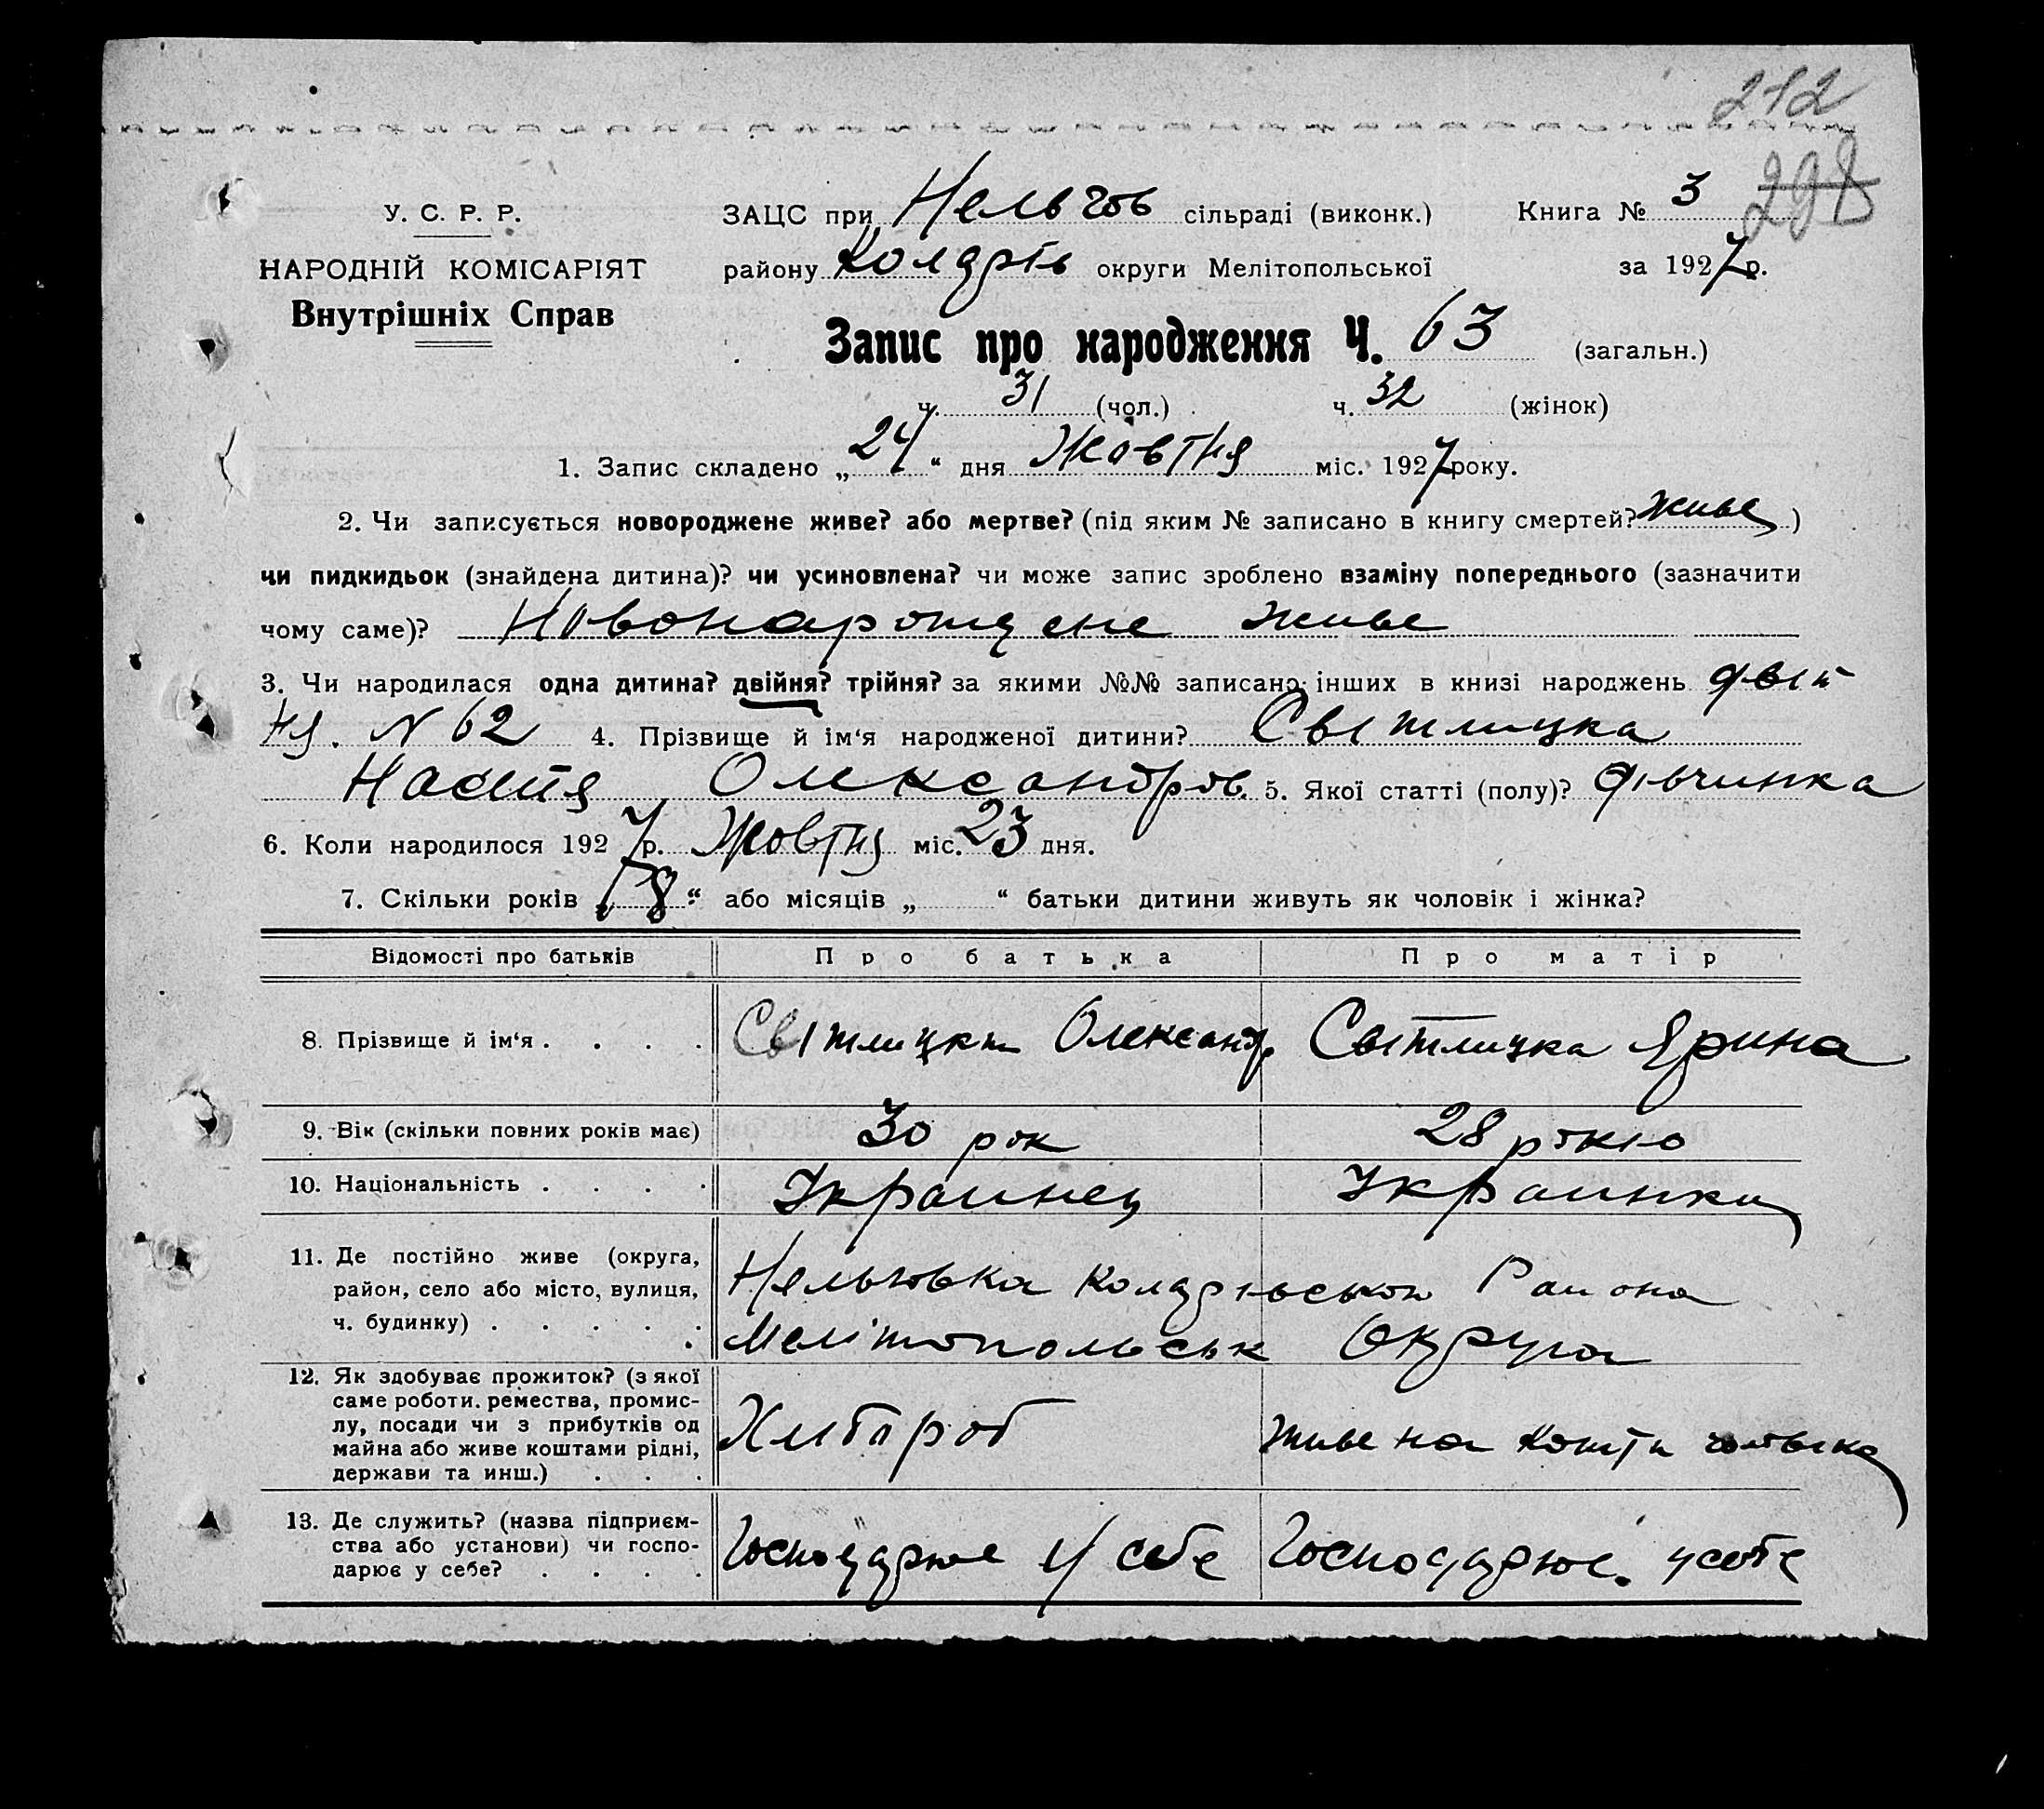 212
298
У. С. Р. Р.
НАРОДНІЙ КОМІСАРІЯТ
Внутрішніх Справ
ЗАЦС при Нельгов сільраді (виконк.) Книга № 3
району Колдрів округи Мелітопольської за 1927 р.
Запис про народження Ч. 63 (загальн.)
ч. 31 (чол.) ч. 32 (жінок)
1. Запис складено „24“ дня Жовтня міс. 1927 року.
2. Чи записується новороджене живе? або мертве? (під яким № записано в книгу смертей? живе)
чи пидкидьок (знайдена дитина)? чи усиновлена? чи може запис зроблено взаміну попереднього (зазначити
чому саме)? Новонарождене живе
3. Чи народилася одна дитина? двійня? трійня? за якими №№ записано інших в книзі народжень двій
ня. N 62 4. Прізвище й ім‘я народженої дитини? Світлицка
Настя Олександров. 5. Якої статті (полу)? дівчинка
6. Коли народилося 1927 р. Жовтня міс. 23 дня.
7. Скільки років „8“ або місяців „ “ батьки дитини живуть як чоловік і жінка?
Відомості про батьків Про батька Про матір
8. Прізвище й ім‘я . . . . Світлицки Олександр Світлицка Ярина
9. Вік (скільки повних років має) 30 рок 28 рокю
10. Національність . . . . Украинец Украинка
11. Де постійно живе (округа,
район, село або місто, вулиця,
ч. будинку) . . . . .
Колдрівськои Раиона
Мелітопольськ Округа
12. Як здобуває прожиток? (з якої
саме роботи. ремества, промис-
лу, посади чи з прибутків од
майна або живе коштами рідні,
держави та инш.) . . .
Хлібороб живе на кошти чоловіка
13. Де служить? (назва підприєм-
ства або установи) чи госпо-
дарює у себе? . . . .
Господарюе у себе Господарюе у себе